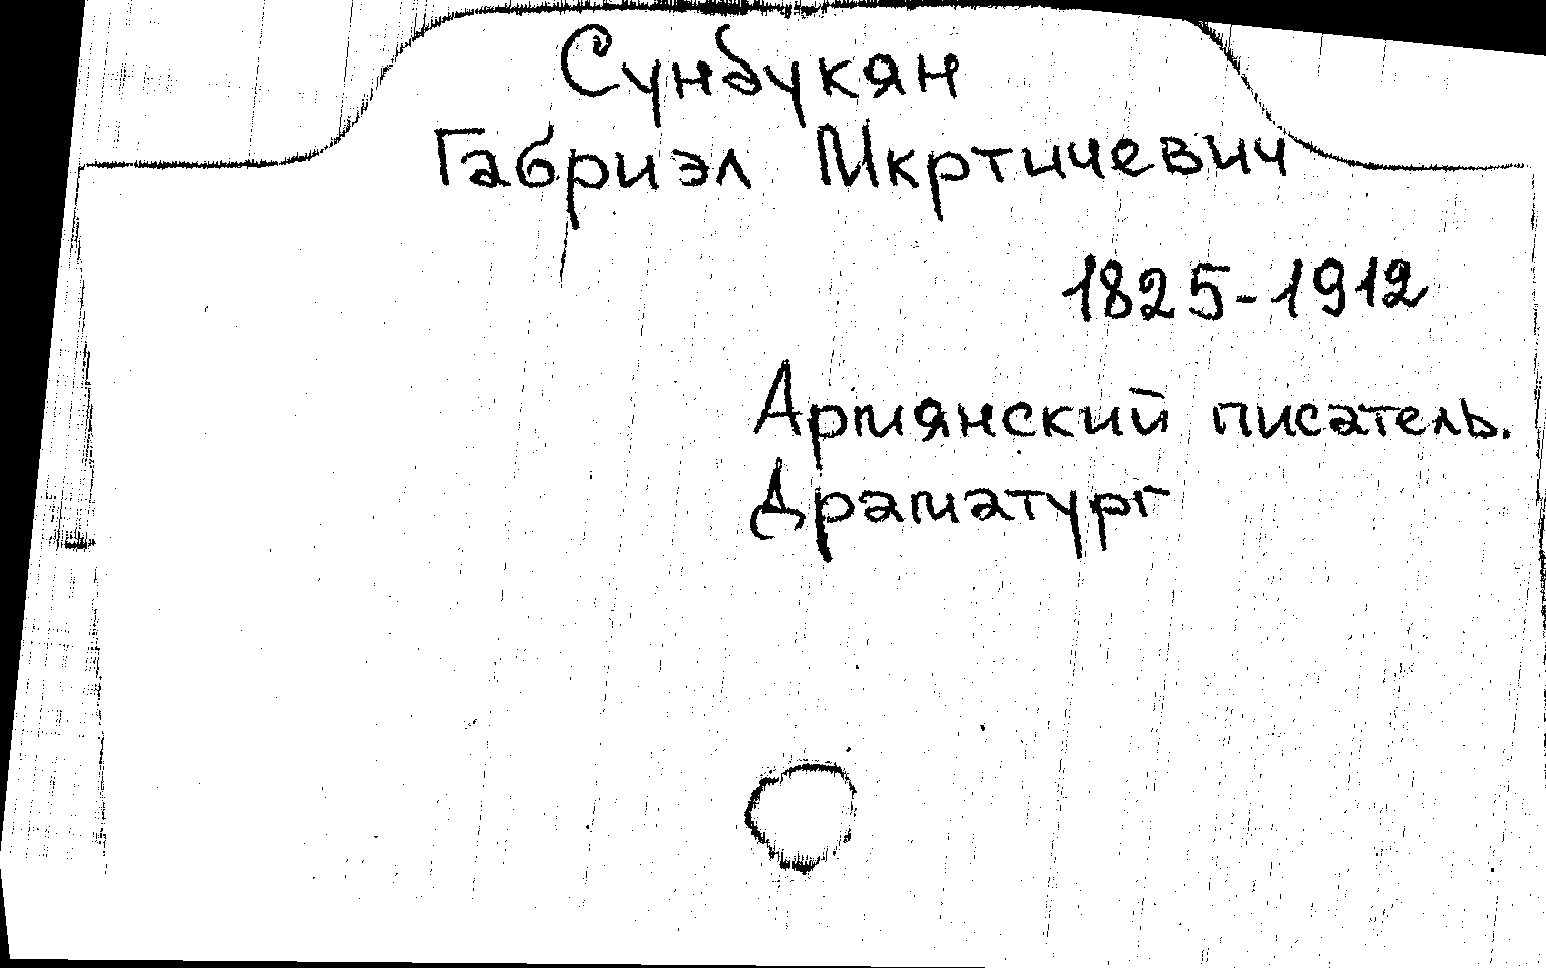 Сундукян
Габриэл Мкртичевич
1825-1912
Армянский писатель.
Драматург